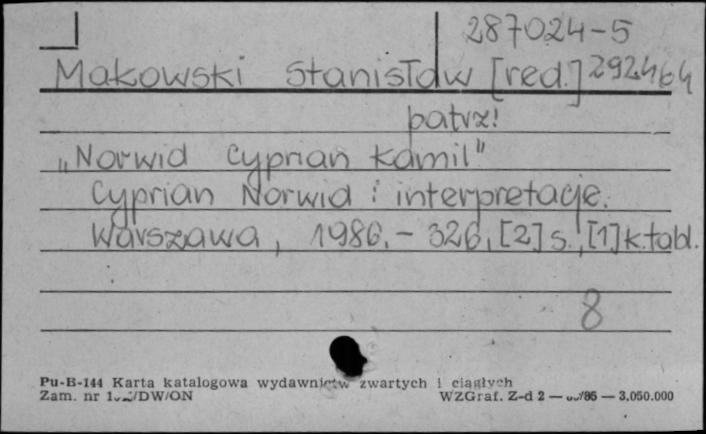 287024-5
Makowski Stanisław [red.] 292464
patrz!
„Norwid Cyprian Kamil"
Cyprian Norwid : interpretacje.
Warszawa, 1986. - 326, [2] s., [1] k. tabl.
8
Pu-B-144 Karta katalogowa wydawnictw zwartych i ciągłych
Zam. nr /DW/ON WZGraf. Z-d 2 — /86 — 3.050.000